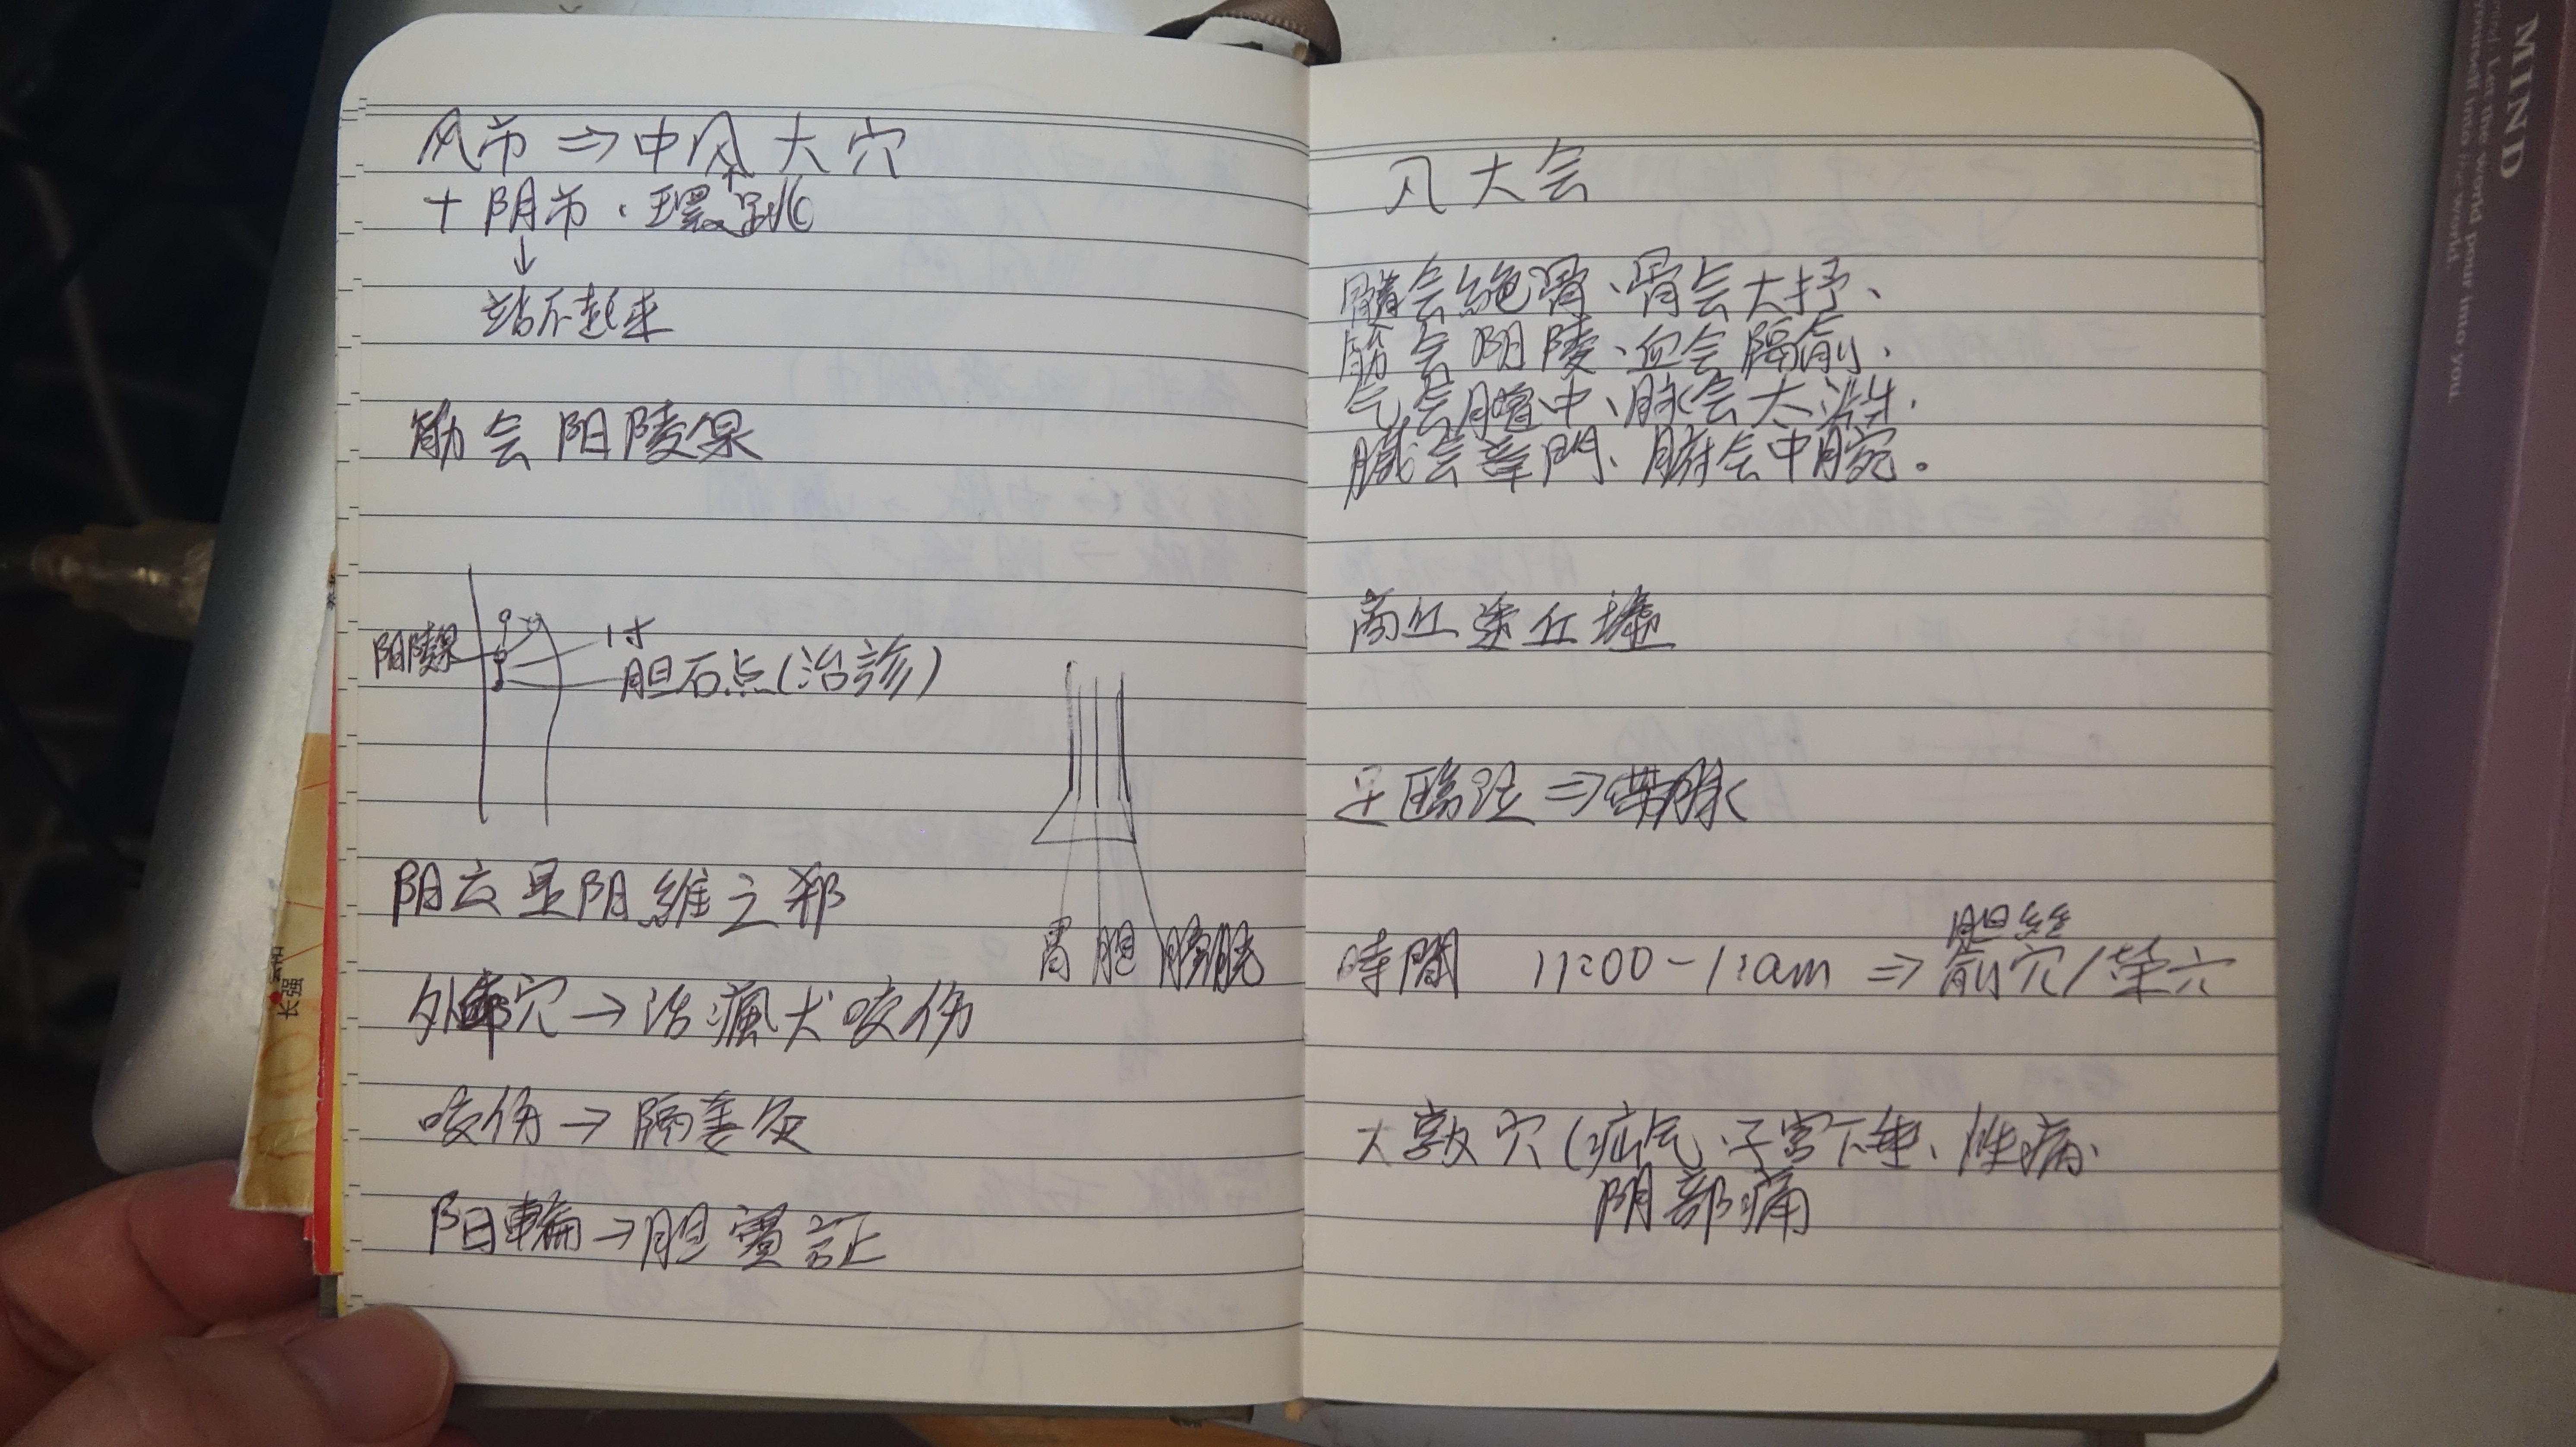 风市 ⇒ 中风大穴
+ 阴市、环跳
↓
站不起来
筋会阳陵泉
阳陵泉
1寸
胆石点(治診)
胃 胆 膀胱
阳交是阳維之郄
外丘穴 → 治瘋犬咬伤
咬伤 → 隔姜灸
阳輔 → 胆實証
八大会
髓会絶骨、骨会大抒、
筋会阳陵、血会隔俞、
气会膻中、脉会太渊、
臓会章門、腑会中脘。
商丘透丘墟
足臨泣 ⇒ 帶脉
胆経
時間 11:00-1:am ⇒ 俞穴/荣穴
大敦穴(疝气、子宫下垂、性病、
阴部痛
MIND
Let the world pour into you.
yourself into the world.
长强